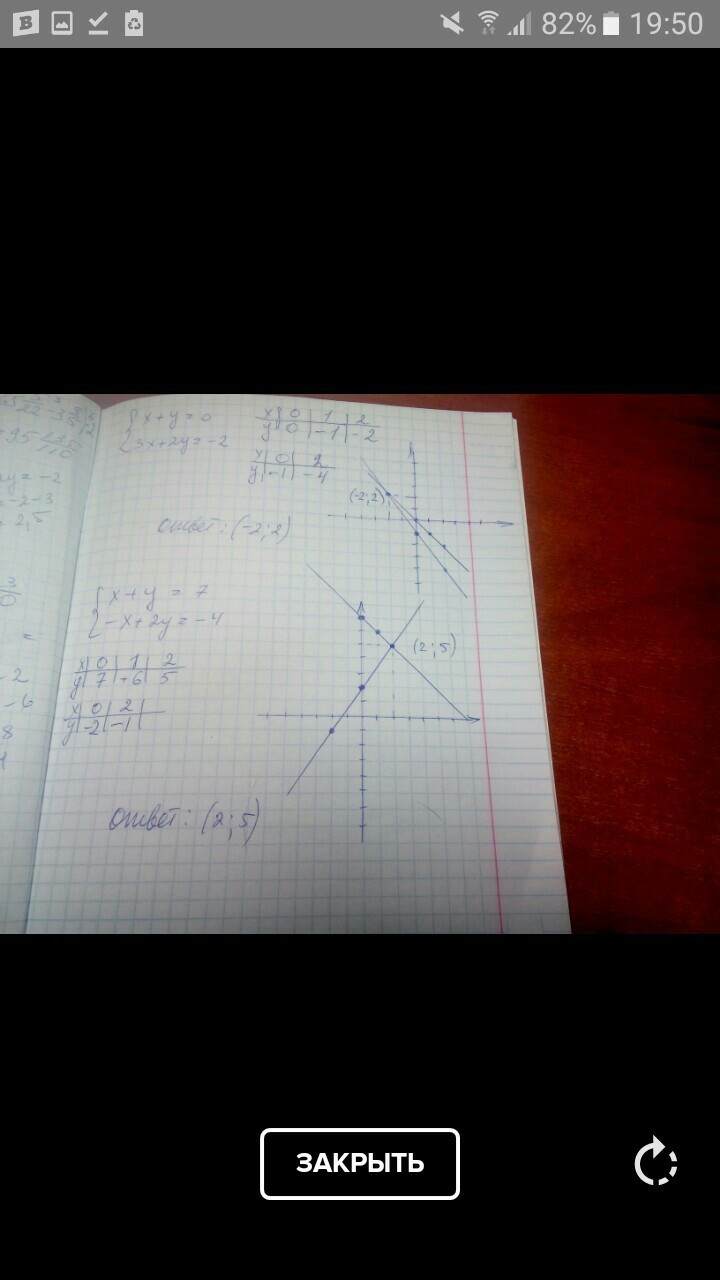 82% 19:50
x+y=0
3x+2y=-2
x 0 1 2
y 0 -1 -2
x 0 2
y -1 -4
(-2;2)
ответ: (-2;2)
x+y = 7
-x+2y=-4
(2;5)
x 0 1 2
y 7 +6 5
x 0 2
y -2 -1
ответ: (2;5)
ay=-2
=-2-3
-2
-6
8
ЗАКРЫТЬ